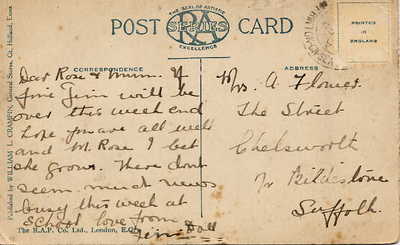 THE SEAL OF ARTISTIC
POST
RA
SERIES
CARD
EXCELLENCE
PRINTED
IN
ENGLAND
CORRESPONDENCE
ADDRESS
Dear Rose & Mum. If
fine Jim will be
over this week end
hope you are all well
and M. Rose I bet
she grows. There dont
seem much news
busy this week at
School love from
Doll
Mrs. A Flowers
The Street
Chelsworth
Nr Bildestone
Suffolk.
Published by WILLIAM L. CRAMPIN, General Stores, Gt. Holland, Essex
The R.A.P. Co. Ltd., London, E.C.